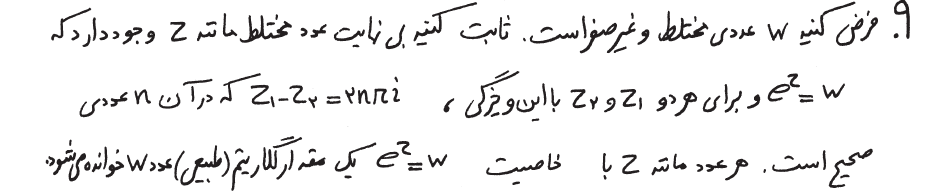 ۹. فرض کنید w عددی مختلط و غیرصفر است. ثابت کنید بی نهایت عدد مختلط مانند z وجود دارد که
e^z = w و برای هر دو z₁ و z₂ با این ویژگی ، z₁ - z₂ = ۲nπi که در آن n عددی
صحیح است. هر عدد مانند z با خاصیت e^z = w یک مقدار لگاریتم (طبیعی) عدد w خوانده می‌شود.